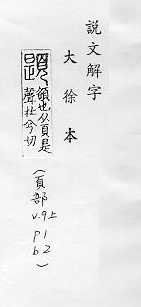 說文解字
大徐本
題
頟也从頁是
聲杜兮切
(頁部
v.9上
p1
b2)